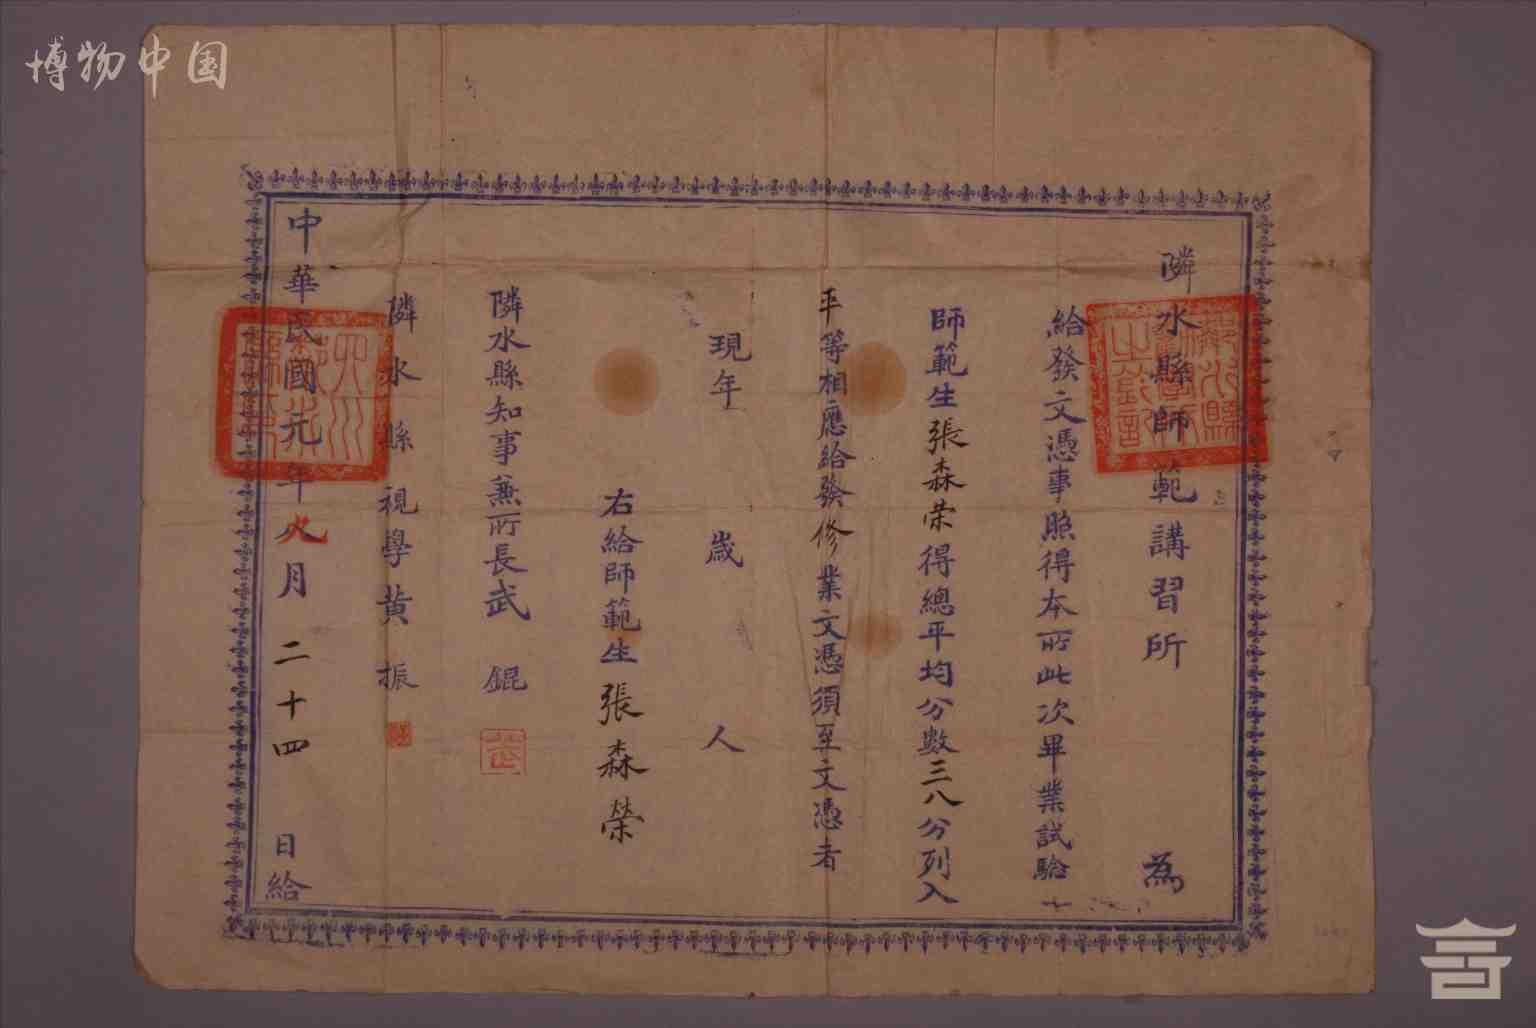 博物中国
隣水縣師範講習所 為
給發文憑事照得本所此次畢業試驗
師範生張森荣得總平均分數三八分列入
平等相應給發修業文憑須至文憑者
現年 歲 人
右給師範生張森榮
隣水縣知事兼所長武 錕
隣水縣視學黄 振
中華民國元年 月二十四日給